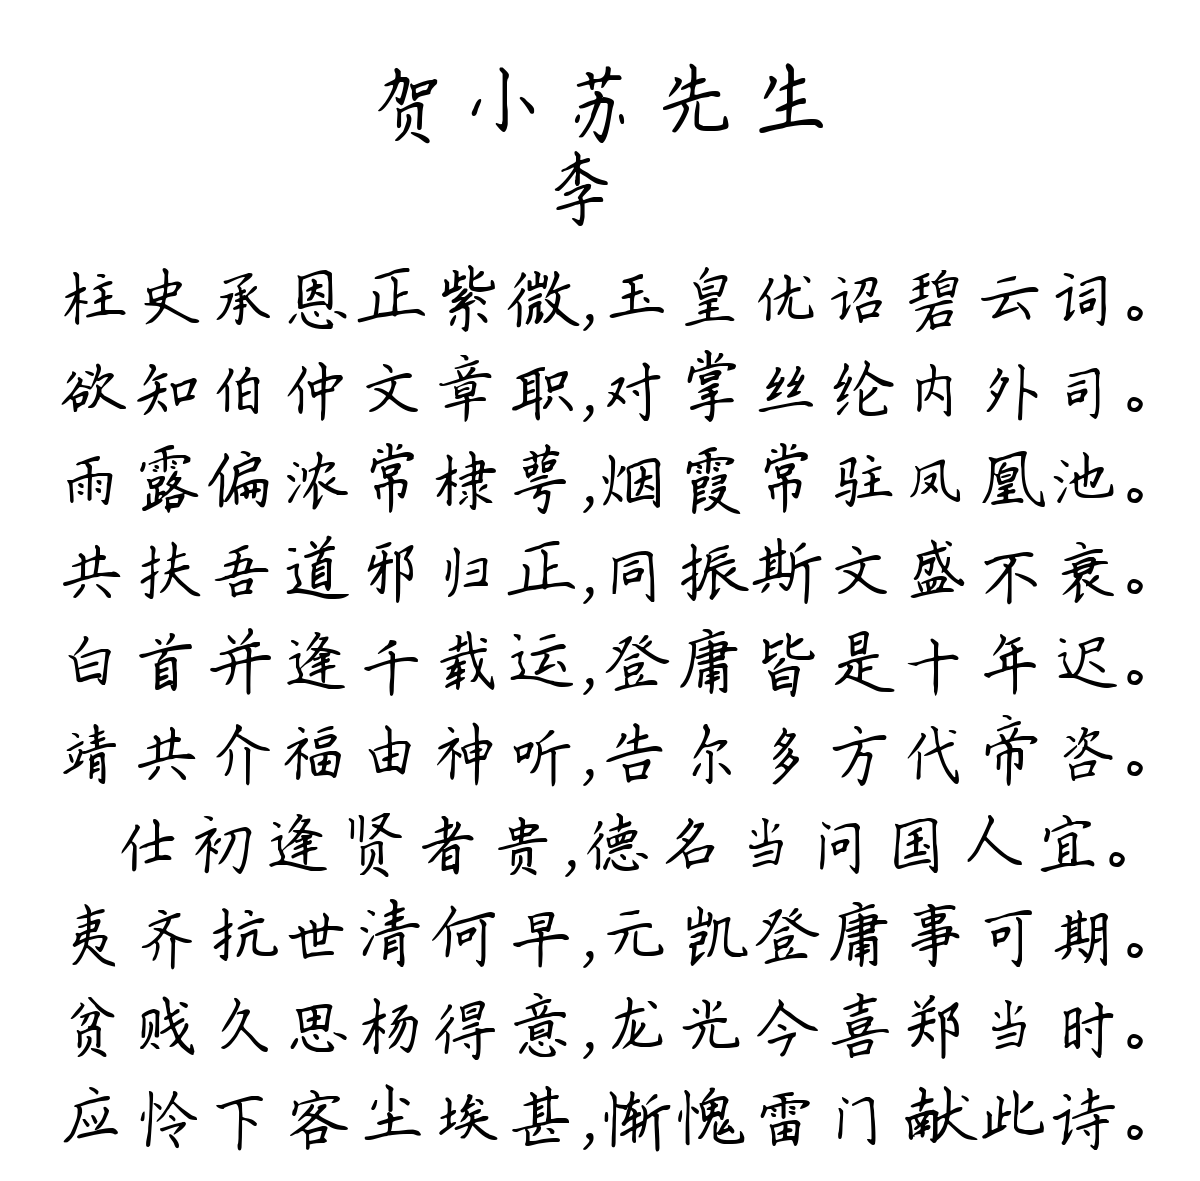 贺小苏先生
李
柱史承恩正紫微,玉皇优诏碧云词。
欲知伯仲文章职,对掌丝纶内外司。
雨露偏浓常棣萼,烟霞常驻凤凰池。
共扶吾道邪归正,同振斯文盛不衰。
白首并逢千载运,登庸皆是十年迟。
靖共介福由神听,告尔多方代帝咨。
仕初逢贤者贵,德名当问国人宜。
夷齐抗世清何早,元凯登庸事可期。
贫贱久思杨得意,龙光今喜郑当时。
应怜下客尘埃甚,惭愧雷门献此诗。